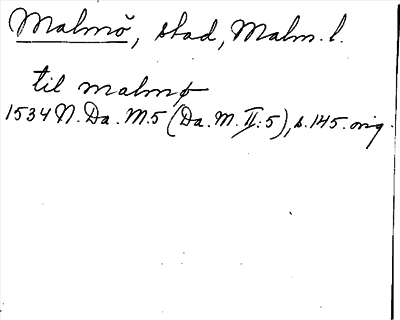 Malmö, stad, Malm. l.
til malmø
1534 N. Da. M. 5 (Da. M. II: 5), s. 145. orig.